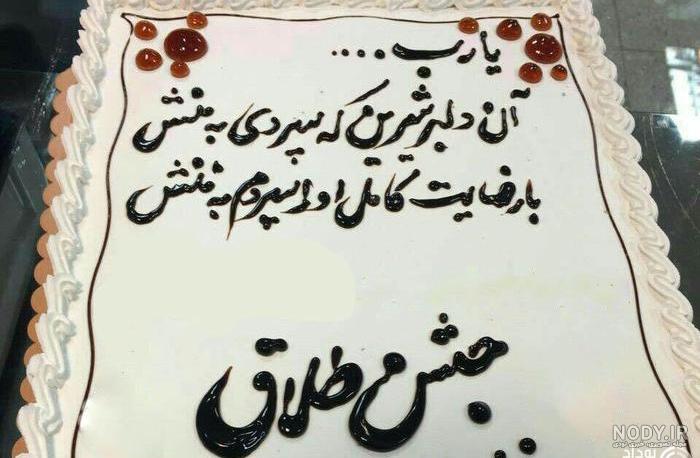 یا رب ....
آن دلبر شیرین که سپردی به منش
با رضایت کامل او را سپردم به ننش
جشن طلاق
NODY.IR